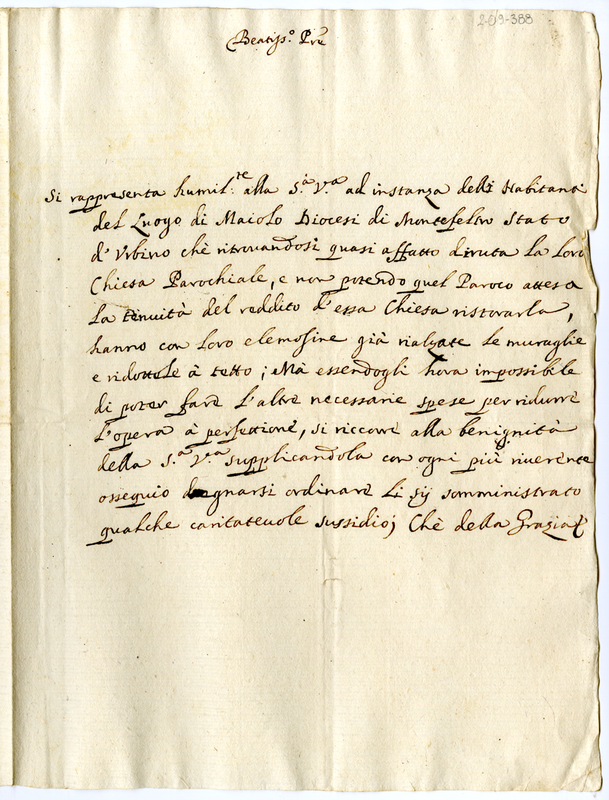 209-388
Beatiss.o Pre
Si rappresenta humil.te alla S.a V.a ad instanza delli Habitanti
del Luogo di Maiolo Diocesi di Montefeltro Stato
d'Urbino chè ritrovandosi quasi affatto diruta la loro
Chiesa Parochiale, e non potendo quel Paroco attesa
la tenuità del reddito d'essa Chiesa ristorarla,
hanno con loro elemosine già rialzate le muraglie
e ridottole à tetto; Mà essendogli hora impossibile
di poter fare l'altre necessarie spese per ridurre
l'opera à perfettione, si ricorre alla benignità
della S.a V.a supplicandola con ogni più riverente
ossequio degnarsi ordinare li sij somministrato
qualche caritatevole sussidio; Chè della Grazia